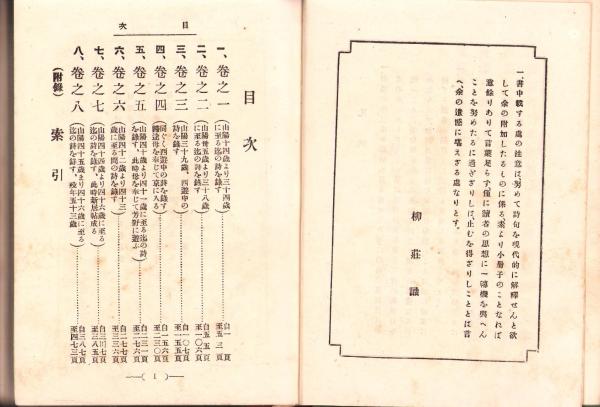 一、書中載する處の注意は、努めて詩句を現代的に解釋せんと欲
して余の附加したるものに係る素より小册子のことなれば
意餘りありて言葉足らず僅に讀者の思想に一轉機を與へん
ことを努めたるに過ぎざりしは、止むを得ざりしこととは言
へ、余の遺憾に堪えざる處なりとす。
柳莊識
目次
目次
一、卷之一(山陽十四歲より三十四歲に至る迄の詩を錄す)……自一頁 至五三頁
二、卷之二(山陽卅五歲より三十八歲に至る迄の詩を錄す)……自五五頁 至一〇六頁
三、卷之三(山陽三十九歲、西遊中の詩を錄す)……自一〇七頁 至一五五頁
四、卷之四(同ぐく西遊中の詩を錄す歸途母を奉じて京に入る)……自一五六頁 至二三〇頁
五、卷之五(山陽四十歲より四十一歲に至る迄の詩を錄す、此時母を奉じて芳野に遊ぶ)……自二三一頁 至二七六頁
六、卷之六(山陽四十二歲より四十三歲に至る間の詩を錄す)……自二七七頁 至三三六頁
七、卷之七(山陽四十四歲より四十六歲に至る迄の詩を錄す、此時新居帖成る)……自三三七頁 至三八五頁
八、卷之八(山陽四十五歲より四十六歲に至る迄の詩を錄す、歿年五十三歲)……自三八七頁 至四七三頁
(附錄)索引
( 1 )